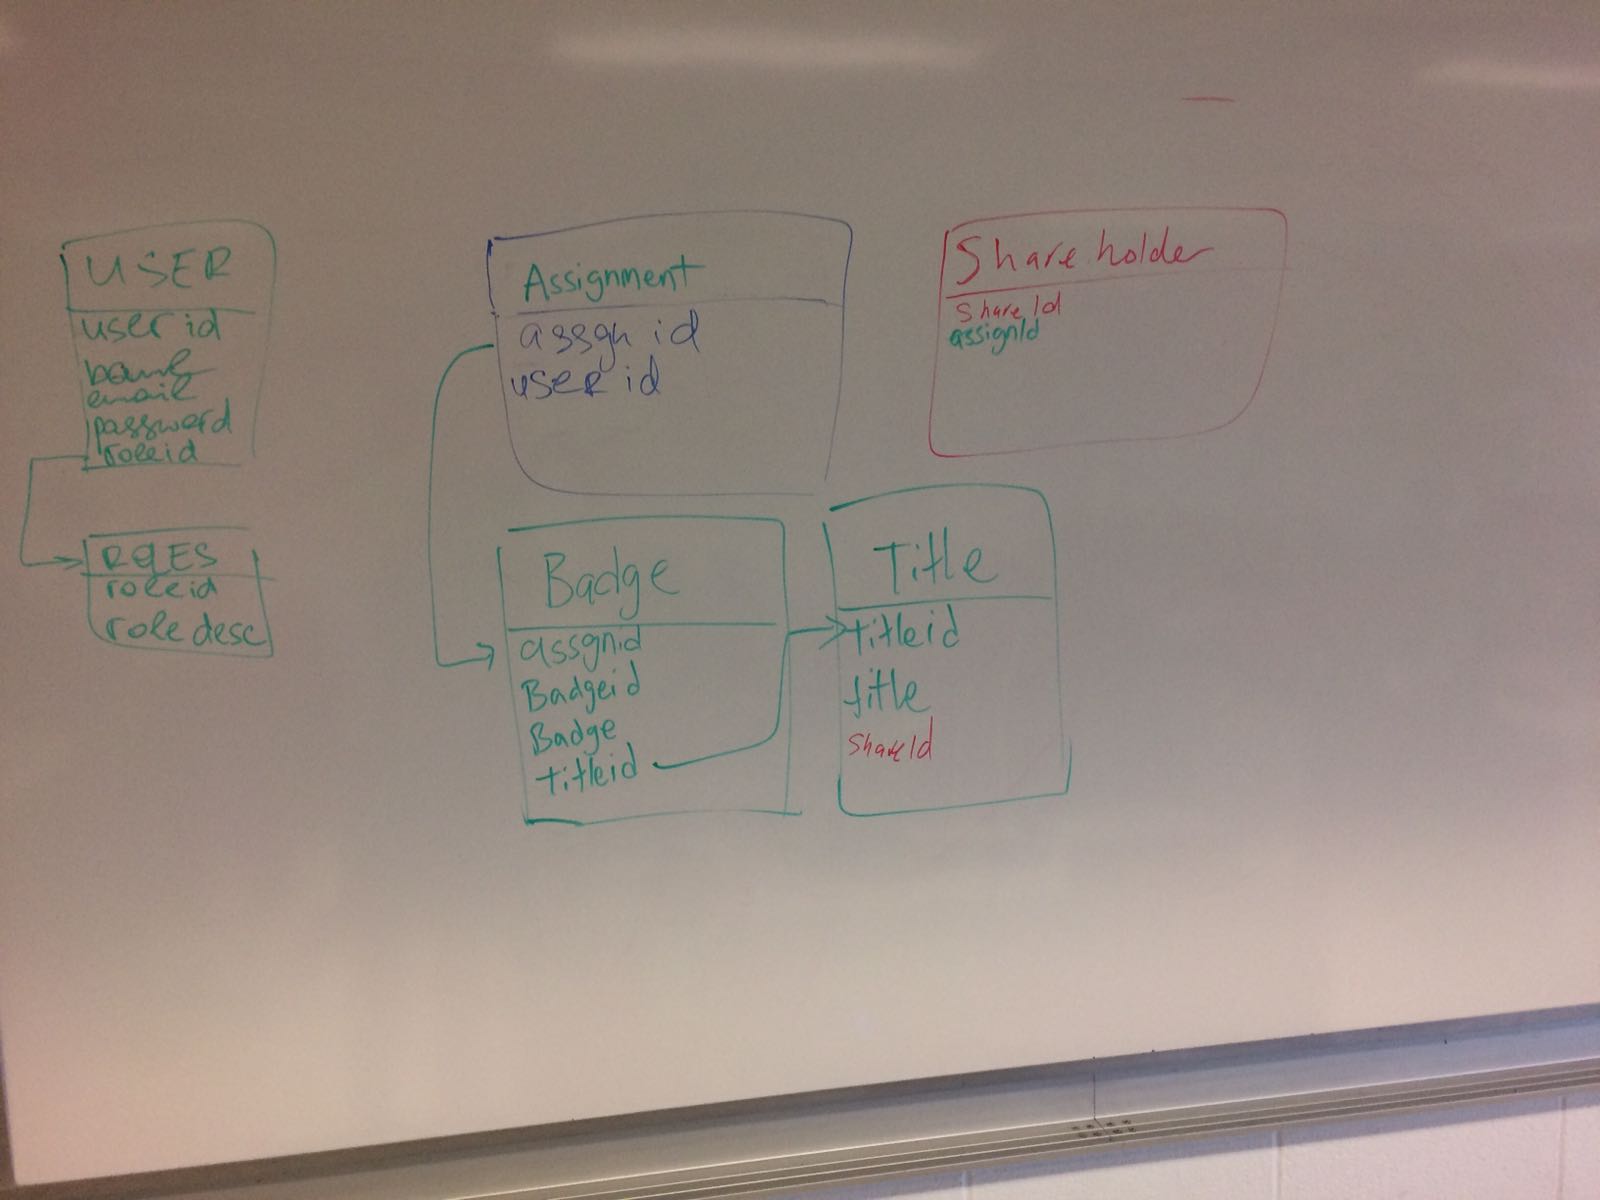 USER
user id
email
password
roleid
ROLES
roleid
role desc
Assignment
assgn id
user id
Share holder
Share Id
assignId
Badge
assgnid
Badgeid
Badge
titleid
Title
titleid
title
ShareId